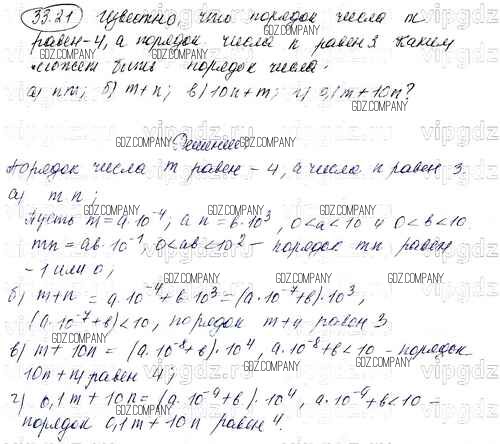 33.21 Известно, что порядок числа m
равен -4, а порядок числа n равен 3. Каким
может быть порядок числа:
а) nm; б) m+n; в) 10n+m; г) 0,1m+10n?
Решение:
Порядок числа m равен -4, а числа n равен 3.
а) m n;
Пусть m=a·10⁻⁴; а n=в·10³, 0<a<10 и 0<в<10.
mn=ab·10⁻¹, 0<ab<10² – порядок mn равен
-1 или 0;
б) m+n = a·10⁻⁴+в·10³=(a·10⁻⁷+в)·10³,
(a·10⁻⁷+в)<10, порядок m+n равен 3.
в) m+10n=(a·10⁻⁸+в)·10⁴, a·10⁻⁸+в<10 – порядок
10n+m равен 4;
г) 0,1m+10n=(a·10⁻⁹+в)·10⁴, a·10⁻⁹+в<10 –
порядок 0,1m+10n равен 4.